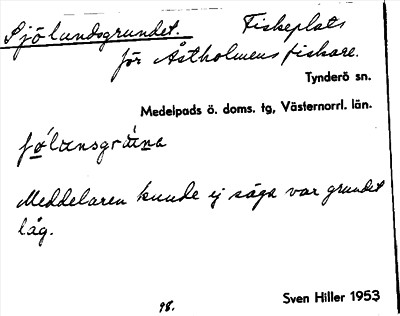 Sjölundsgrundet. Fiskeplats
för Åstholmens fiskare.
Tynderö sn.
Medelpads ö. doms. tg, Västernorrl. län.
Meddelaren kunde ej säga var grundet
låg.
98. Sven Hiller 1953